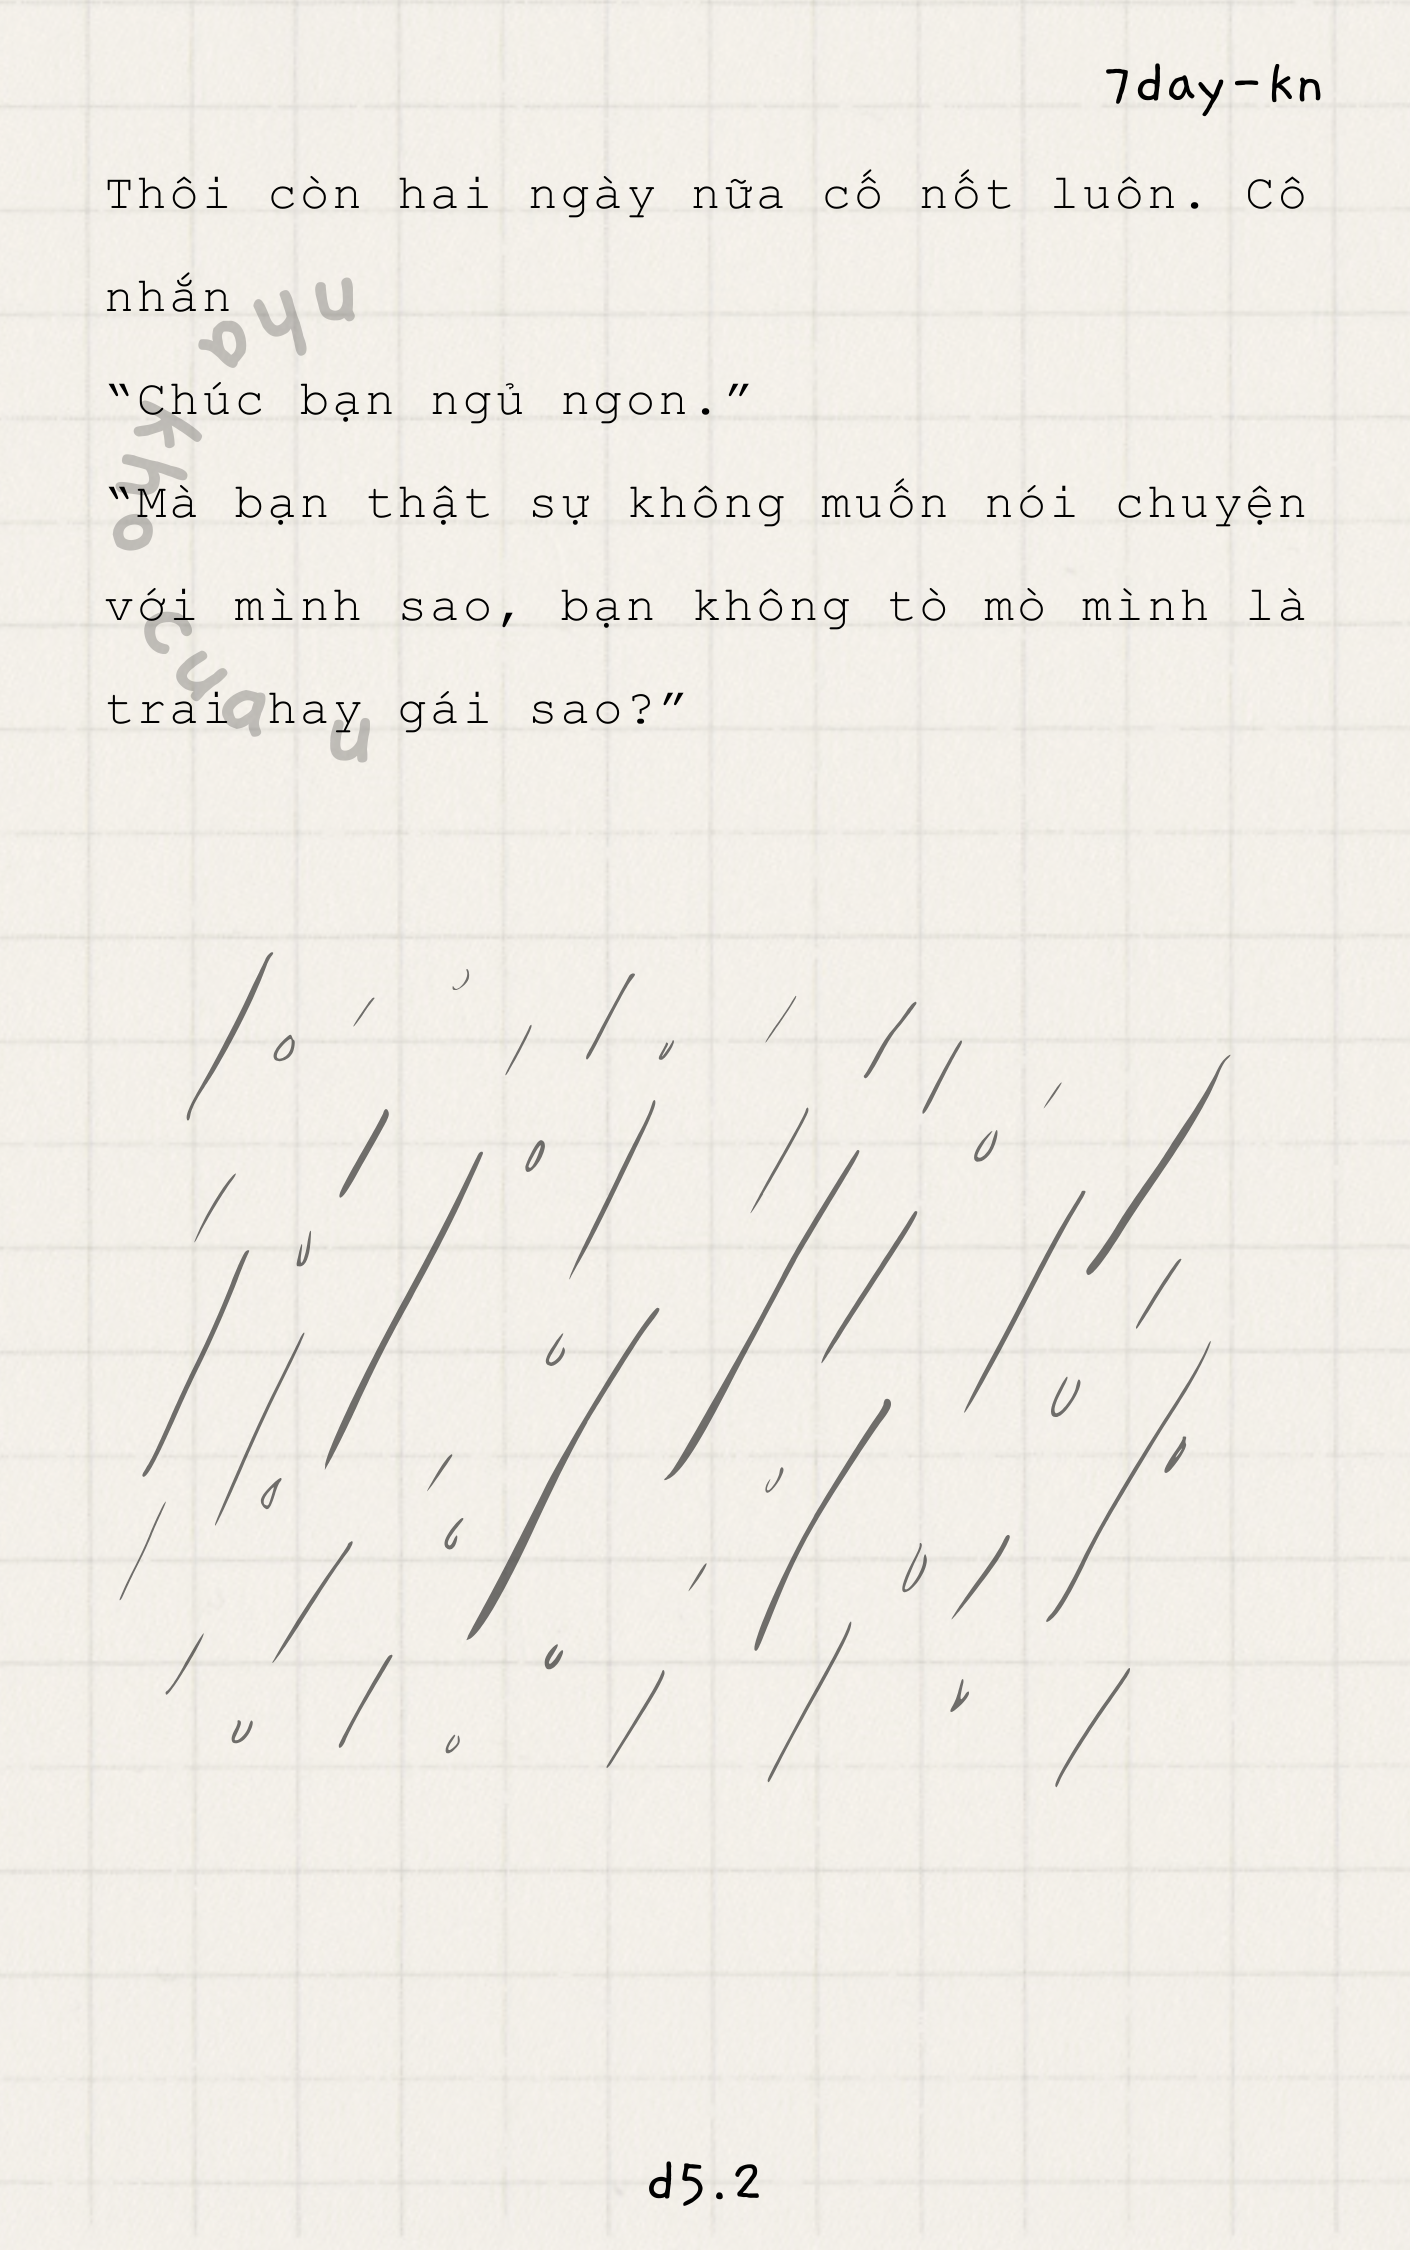 7day-kn
Thôi còn hai ngày nữa cố nốt luôn. Cô
nhắn
“Chúc bạn ngủ ngon.”
“Mà bạn thật sự không muốn nói chuyện
với mình sao, bạn không tò mò mình là
trai hay gái sao?”
nha kho cua u
d5.2